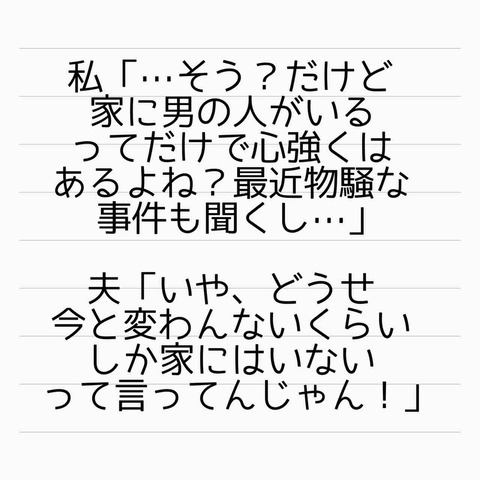 私「…そう？だけど
家に男の人がいる
ってだけで心強くは
あるよね？最近物騒な
事件も聞くし…」
夫「いや、どうせ
今と変わんないくらい
しか家にはいない
って言ってんじゃん！」